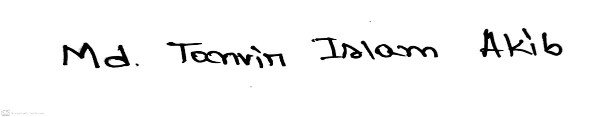 Md. Tanvir Islam Akib